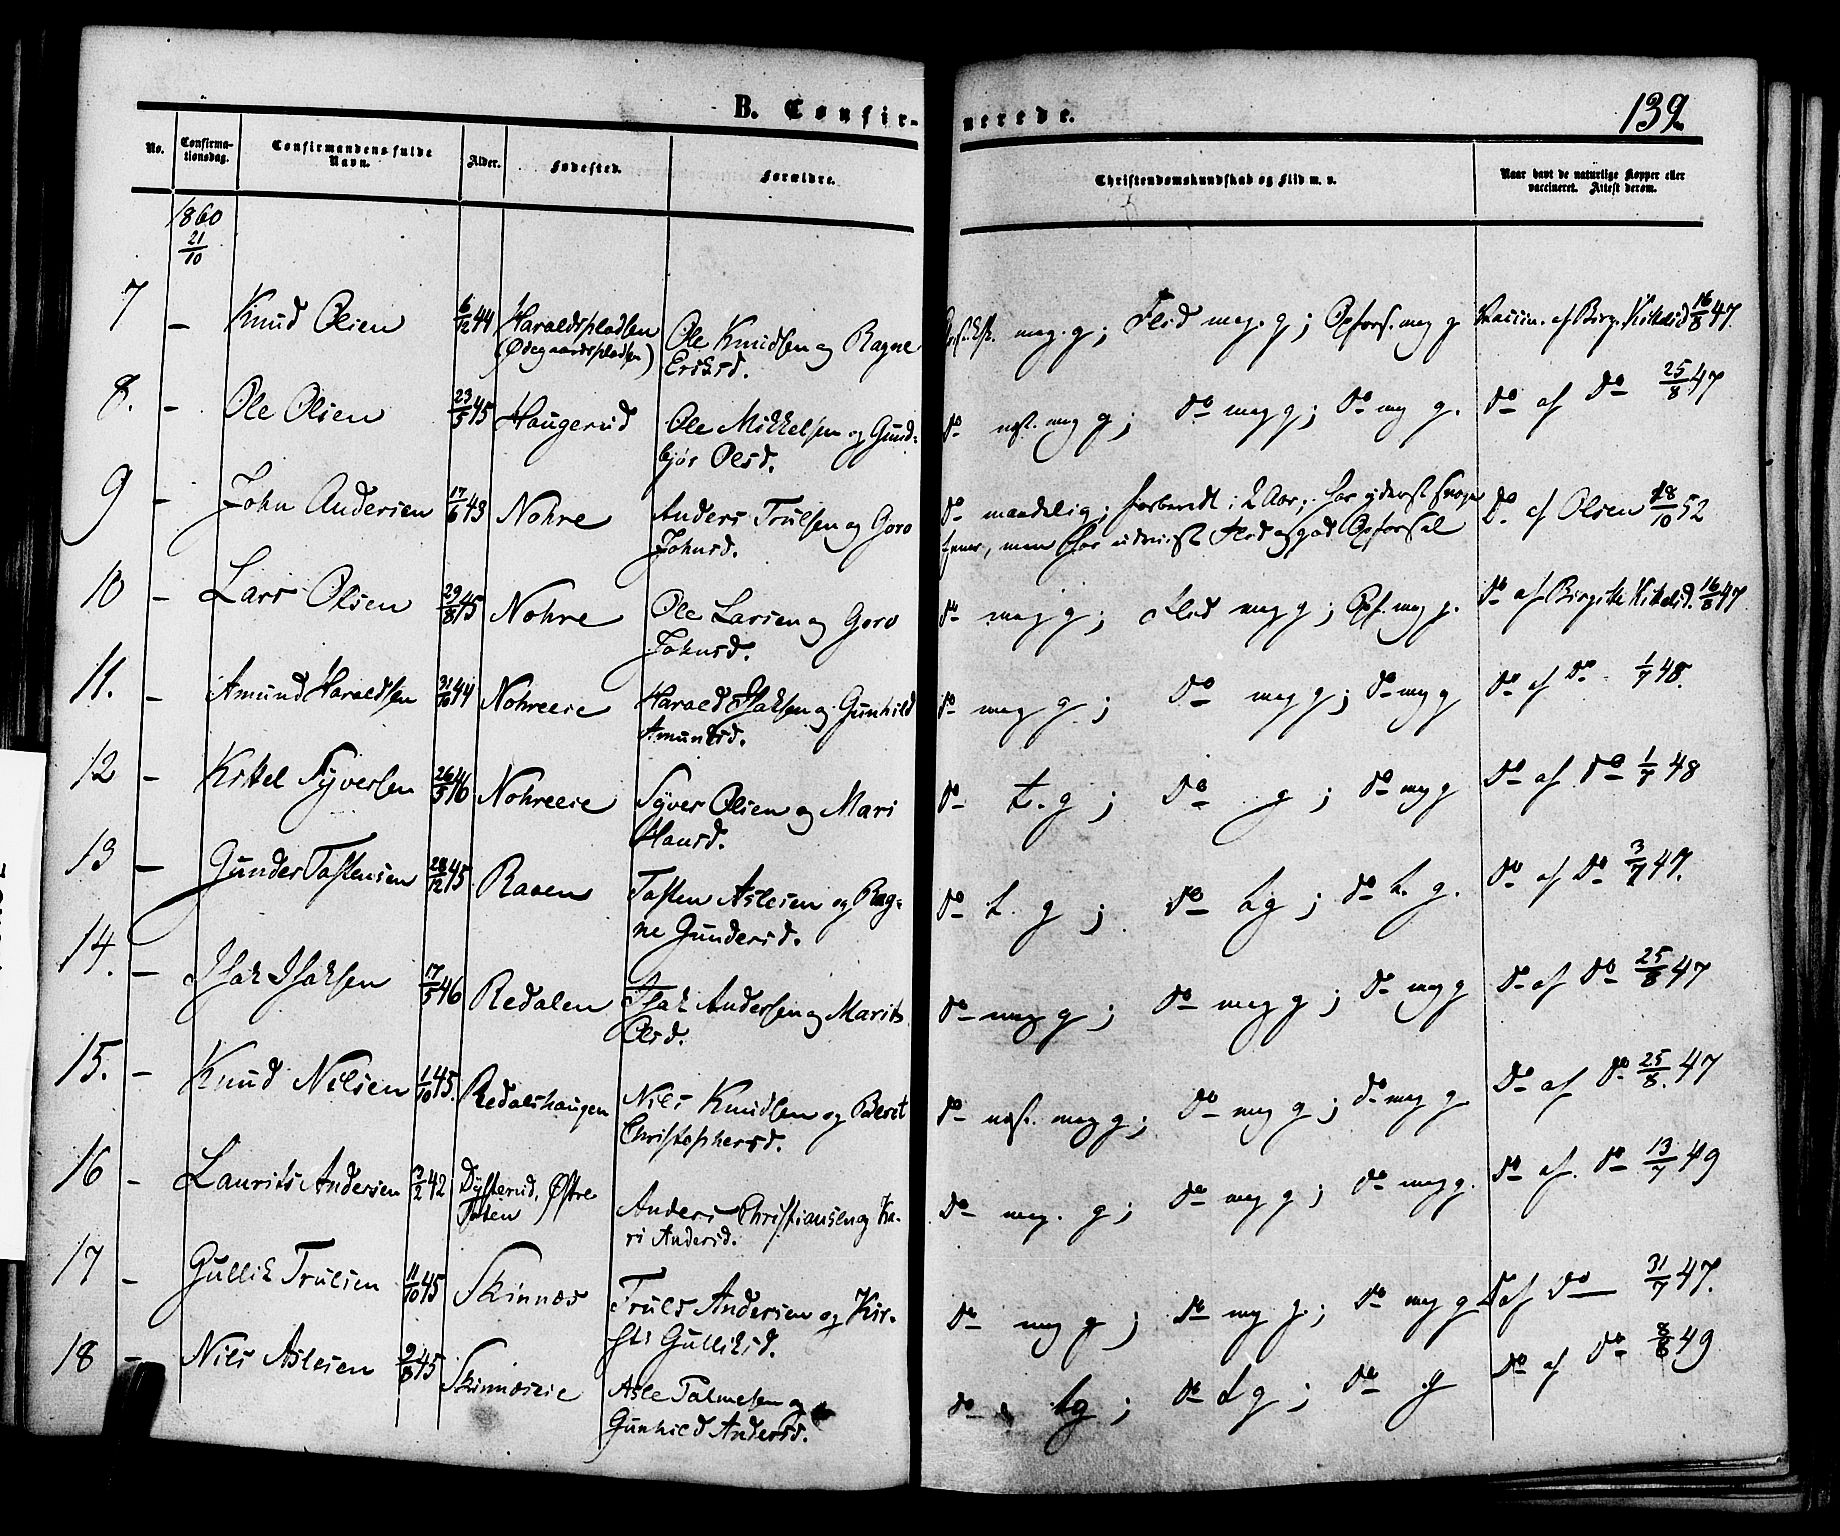 B. Confir- merede. 139
No.
Confirma-
tionsdag.
Confirmandens fulde
Navn.
Alder.
Fødested.
Forældre.
Christendomskundskab og Flid m. v.
Naar havt de naturlige Kopper eller
vaccineret. Attest derom.
1860
21/10
7 – Knud Olsen 6/12 44 Haraldspladsen Ole Knudsen og Ragne meg. g; Flid meg. g; Opførs. meg g Vaccin. af Birg. 16/8 47.
(Ødegaardspladsen) Eriksd.
8. – Ole Olsen 23/5 45 Haugerud Ole Mikkelsen og Gund- do næst. meg g; do meg g; do meg g. do af do 25/8 47
bjør Olsd.
9 – John Andersen 17/6 43 Nohre Anders Trulsen og Goro do maadelig; forberedt i 2 Aar; har yderst svage do af Olsen 18/10 52
Johnsd. Evner, men har udviist Flid og god Opførsel
10 – Lars Olsen 29/8 45 Nohre Ole Larsen og Goro do meg g; Flid meg g; Opf. meg g. do af Birgitte 16/8 47
Johnsd.
11. – Amund Haraldsen 31/10 44 Nohreeie Harald Isaksen og Gunhild do meg g; do meg g; do meg g do af do 1/7 48.
Amundsd.
12 – Kittel Syversen 26/5 46 Nohreeie Syver Olsen og Mari do t. g; do g; do meg g do af do 1/7 48
Hansd.
13 – Gunder Tostensen 28/12 45 Raaen Tosten Aslesen og Rag- do t. g; do t g; do t. g. do af do 3/7 47.
ne Gundersd.
14. – Isak Isaksen 17/5 46 Redalen Isak Andersen og Marit do meg g; do meg g; do meg g do af do 25/8 47
Olsd.
15. – Knud Nilsen 1/10 45. Redalshaugen Nils Knudsen og Beret do næst. meg g; do meg g; do meg g do af do 25/8. 47
Christophersd.
16 – Laurits Andersen 3/2 42 Dysterud, Østre Anders Christiansen og Ka- do meg. g; do meg g; do meg g. do af. do 13/7 49
Toten ri Andersd.
17 – Gullik Trulsen 11/10 45 Skinnæs Truls Andersen og Kir- do meg g; do meg g; do meg g do af do 31/7 47.
sti Gulliksd.
18 – Nils Aslesen 9/8 45 Skinnæseie Asle Palmesen og do tg; do t g; do g do af do 8/8 49
Gunhild Andersd.